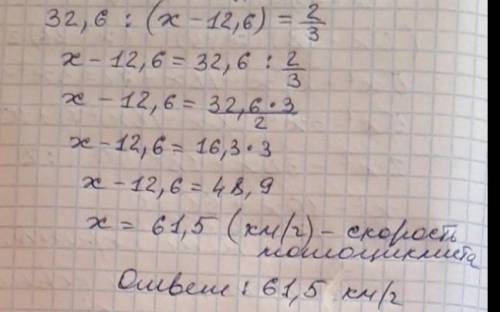 32,6 : (x - 12,6) = 2/3
x - 12,6 = 32,6 : 2/3
x - 12,6 = 32,6 • 3 / 2
x - 12,6 = 16,3 • 3
x - 12,6 = 48,9
x = 61,5 (км/г) - скорость
мотоциклиста
Ответ : 61,5 км/г